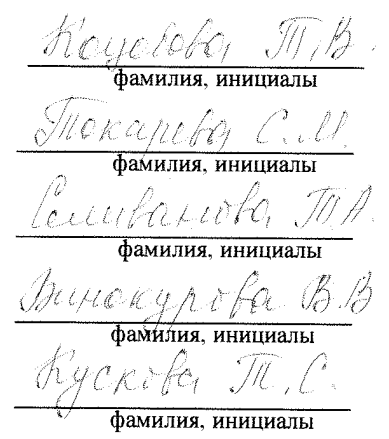 Коцобова Т.В.
фамилия, инициалы
Токарева С.М.
фамилия, инициалы
Селиванова Т.А.
фамилия, инициалы
Винокурова В.В
фамилия, инициалы
Кускова Т.С.
фамилия, инициалы